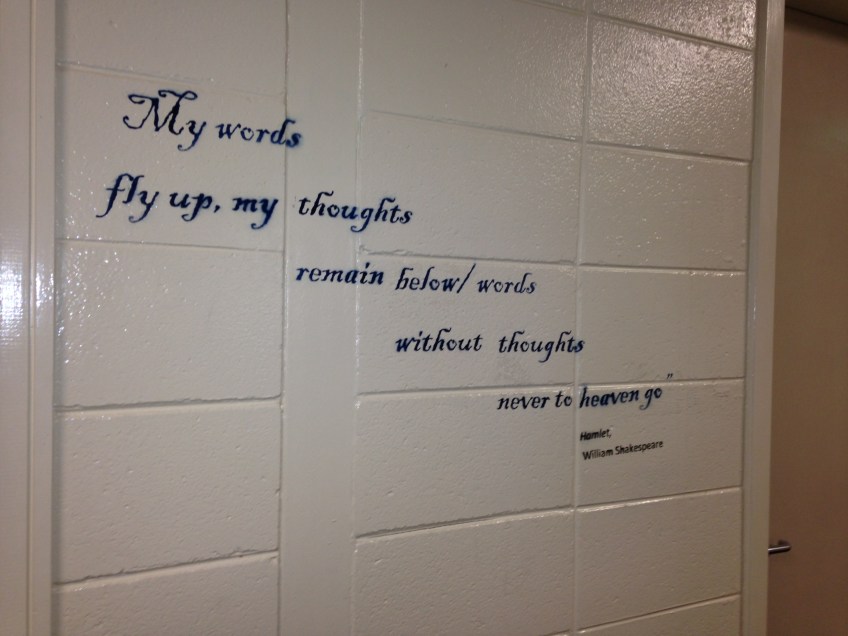 My words
fly up, my thoughts
remain below/ words
without thoughts
never to heaven go"
Hamlet,
William Shakespeare